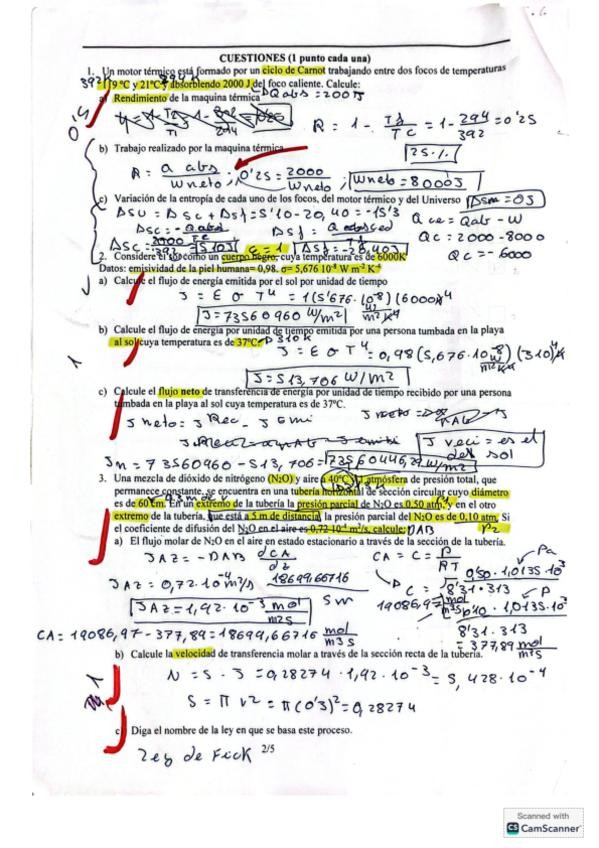 CUESTIONES (1 punto cada una)
1. Un motor térmico está formado por un ciclo de Carnot trabajando entre dos focos de temperaturas
392K 294K
119 ºC y 21ºC y absorbiendo 2000 J del foco caliente. Calcule:
a) Rendimiento de la maquina térmica
Qabs = 200J
R = 1 - Tf/Tc = 1 - 294/392 = 0'25
25%
0,5
b) Trabajo realizado por la maquina térmica
R = Q abs / W neto ; 0'25 = 2000 / W neto ; W neto = 8000J
c) Variación de la entropía de cada uno de los focos, del motor térmico y del Universo
ΔSm = 0J
ΔSU = ΔSc + ΔSf = 5'10 - 20,40 = -15'3
Qce = Qab - W
Qc = 2000 - 8000
Qc = -6000
2. Considere el sol como un cuerpo negro, cuya temperatura es de 6000K
ε = 1
Datos: emisividad de la piel humana= 0,98. σ= 5,676 10⁻⁸ W m⁻² K⁻⁴
a) Calcule el flujo de energía emitida por el sol por unidad de tiempo
J = ε σ T⁴ = 1(5'676·10⁻⁸)(6000)⁴
J = 73560960 W/m²
b) Calcule el flujo de energía por unidad de tiempo emitida por una persona tumbada en la playa
al sol cuya temperatura es de 37ºC.
310K
J = ε σ T⁴ = 0,98 (5,676·10⁻⁸ W/m²K⁴) (310)⁴
1
J = 513,706 W/m²
c) Calcule el flujo neto de transferencia de energía por unidad de tiempo recibido por una persona
tumbada en la playa al sol cuya temperatura es de 37ºC.
J neto = J Rec - J emi
J reci = es el del sol
Jn = 73560960 - 513,706 = 73560446,29 W/m²
3. Una mezcla de dióxido de nitrógeno (N₂O) y aire a 40ºC y 1 atmósfera de presión total, que
permanece constante, se encuentra en una tubería horizontal de sección circular cuyo diámetro
es de 60 cm. En un extremo de la tubería la presión parcial de N₂O es 0,50 atm, y en el otro
extremo de la tubería, que está a 5 m de distancia, la presión parcial del N₂O es de 0,10 atm. Si
el coeficiente de difusión del N₂O en el aire es 0,72 10⁻⁴ m²/s, calcule: DAB P2
a) El flujo molar de N₂O en el aire en estado estacionario a través de la sección de la tubería.
JAZ = -DAB dCA/dz
CA = C = P/RT
JAZ = 0,72·10⁻⁴ m²/s 18699,66716 / 5m
C = 0,50·1,0135·10⁵ / 8'31·313
19086,97 mol/m³
JAZ = 1,92·10⁻³ mol/m²s
0'10·1,0135·10⁵ / 8'31·313
CA = 19086,97 - 377,89 = 18699,66716 mol/m³s
= 377,89 mol/m³s
b) Calcule la velocidad de transferencia molar a través de la sección recta de la tubería.
N = S · J = 0,28274 · 1,92·10⁻³ = 5,428·10⁻⁴
1
S = π r² = π(0'3)² = 0,28274
c) Diga el nombre de la ley en que se basa este proceso.
Ley de Fick
2/5
Scanned with
CS CamScanner